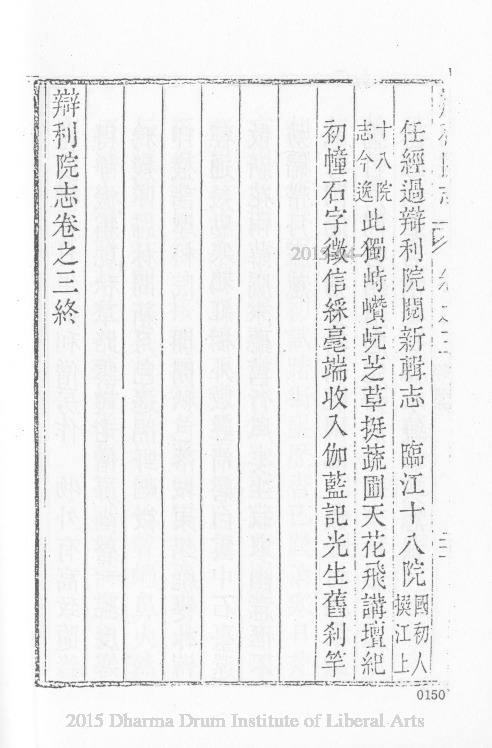 任經過辯利院閱新輯志　臨江十八院國初人撰江上
十八院志今逸此獨峙巑岏芝草挺蔬圃天花飛講壇紀
初幢石字徵信綵毫端收入伽藍記光生舊刹竿
辯利院志卷之三終
0150
2015 Dharma Drum Institute of Liberal Arts